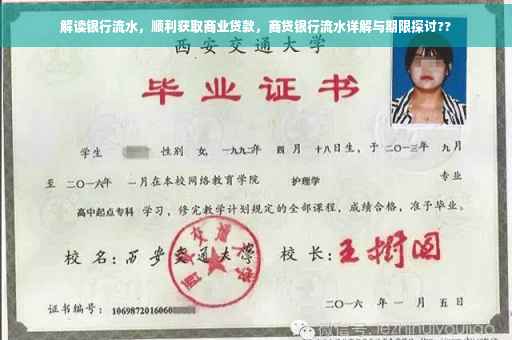 解读银行流水，顺利获取商业贷款，商贷银行流水详解与期限探讨??
西安交通大学
毕业证书
学生 性别 女，一九九二年 四月 十八日生，于二〇一三年 九月
至 二〇一六年 一月在本校网络教育学院 护理学 专业
高中起点专科 学习，修完教学计划规定的全部课程，成绩合格，准予毕业。
校名：西安交通大学 校长：王树国
西安交通大学
证书编号：1069872016060
二〇一六年一月五日
微信号: jezhinuiyoujiao